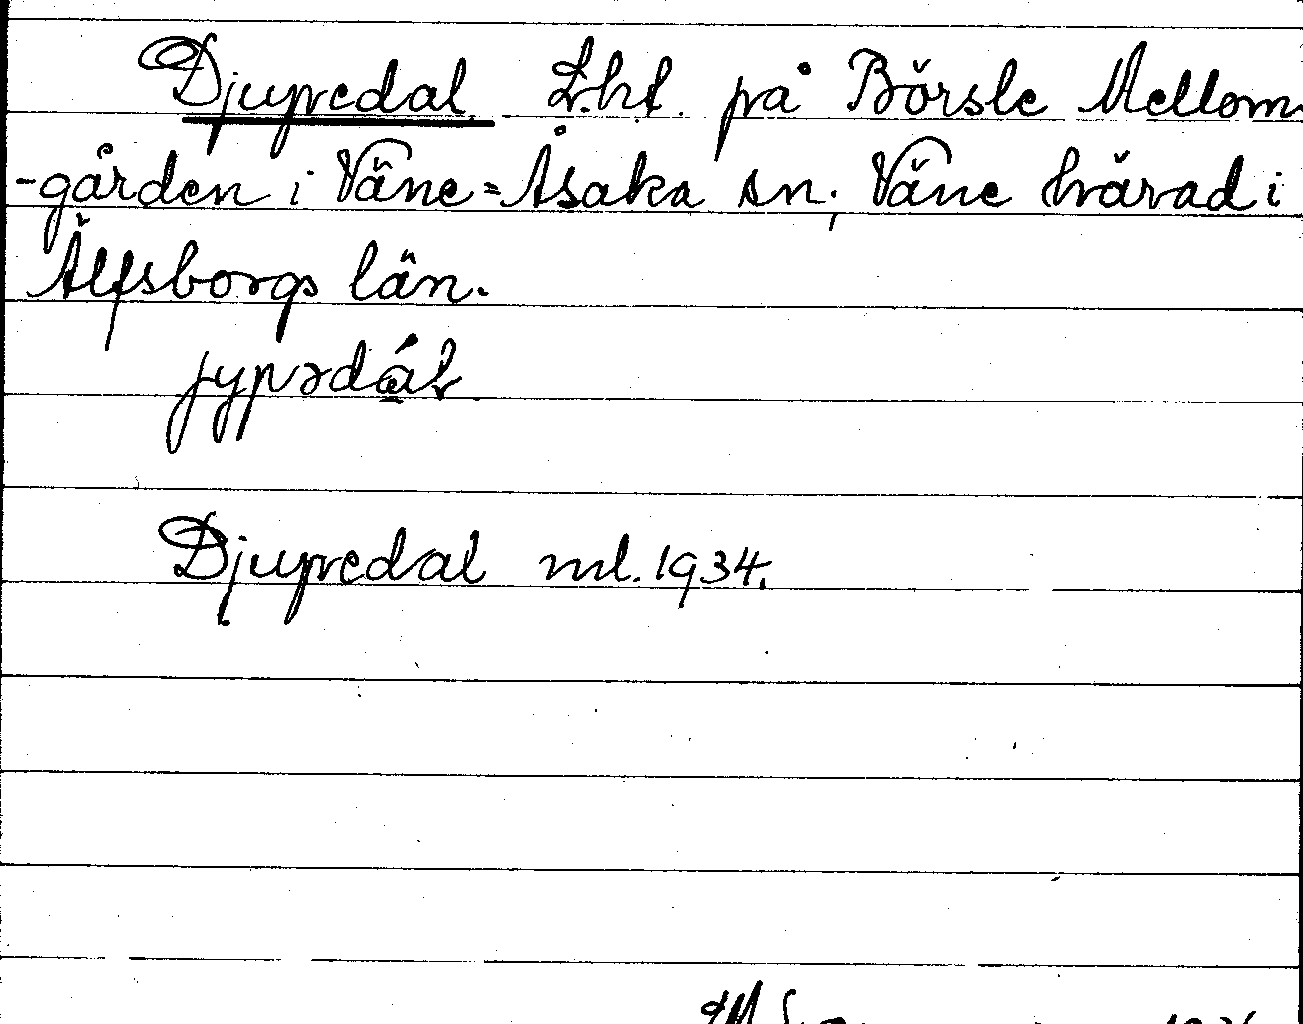 Djupedal. L.ht. på Börsle Mellom-
-gården i Väne-Åsaka sn; Väne härad i
Älfsborgs län.
jypədál
Djupedal ml. 1934.